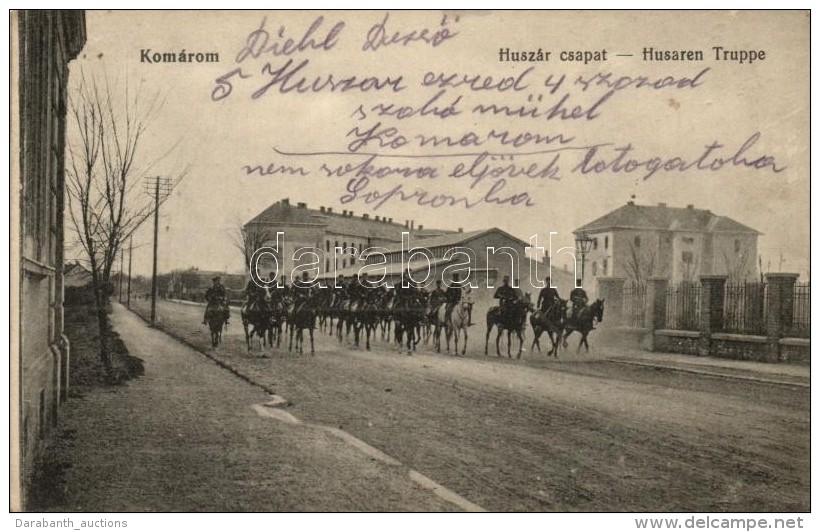 Komárom
Huszár csapat — Husaren Truppe
Diehl Dezső
5 Huszar ezred 4 szazad
szabó mühel
Komarom
nem sokara eljövek latogatoba
Sopronba
Darabanth
Darabanth_auctions
delcampe.net